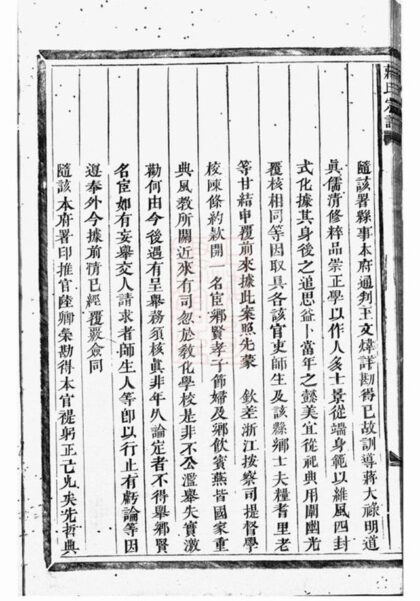 蔣氏宗譜
隨該署縣事本府通判王文煒詳勘得已故訓導蔣大祿明道
眞儒清修粹品崇正學以作人多士景從端身範以維風四封
式化據其身後之追思益卜當年之懿美宜從祀典用闡幽光
覆核相同等因取具各該官吏師生及該縣鄉士夫糧耆里老
等甘結申覆前來據此案照先蒙 欽差浙江按察司提督學
校陳條約款開 名宦鄉賢孝子節婦及鄉飲賓燕皆國家重
典風教所關近來有司忽於敎化學校是非不公濫舉失實激
勸何由今後遇有呈舉務須核眞非年久論定者不得舉鄉賢
名宦如有妄舉交人請求者師生人等卽以行止有虧論等因
遵奉外今據前情已經覆覈僉同
隨該 本府署印推官陸卿榮勘得本官禔躬正己允矣先哲典